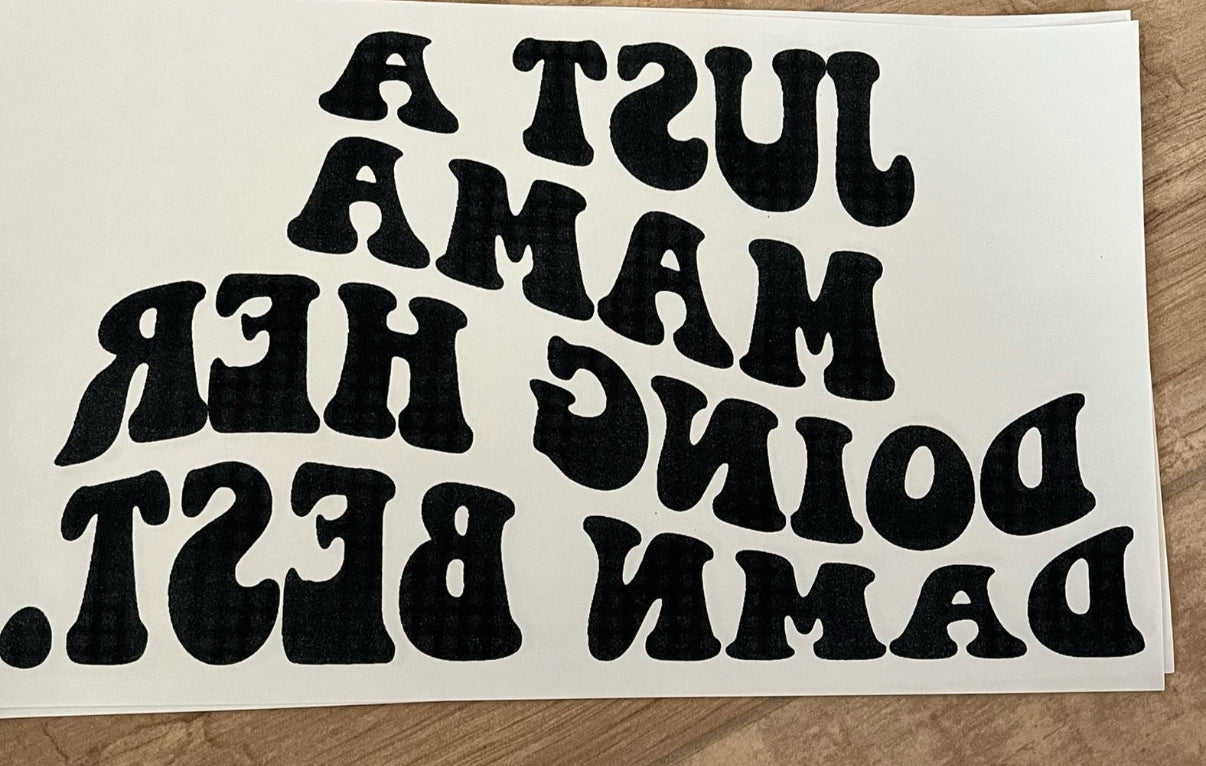 JUST A
MAMA
DOING HER
DAMN BEST.